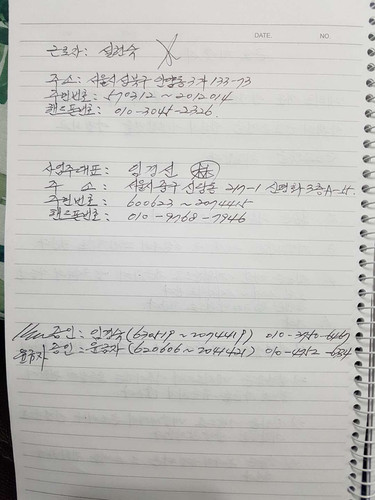 DATE NO
근로자:
주소: 서울시 성북구 안암동3가 133-73
주민번호: 570312 ~ 2012014
핸드폰번호: 010-3045-2326
사업주대표: 임경선
주 소: 서울시 중구 신당동 217-1 신평화 3층A-
주민번호: 600623 ~ 2074415
핸드폰번호: 010-9768-7946
증인: 임경숙(630519~2074419) 010-3750-
윤금자 증인: 윤금자(620606~2041421) 010-4952-